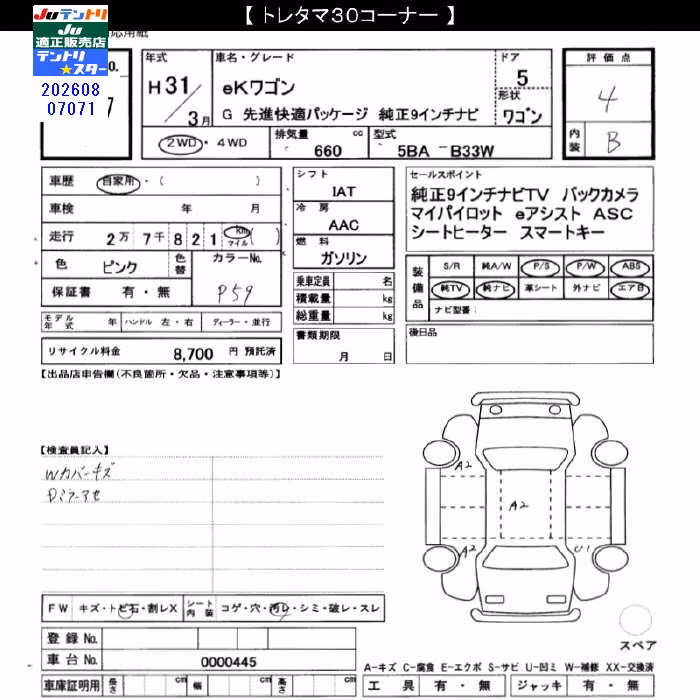 【 トレタマ30コーナー 】
Juテントリ
Ju
適正販売店
テントリ
★スター
応用紙
No.
202608
07071
7
年式
H 31/3月
車名・グレード
eKワゴン
G 先進快適パッケージ 純正9インチナビ
ドア
5
形状
ワゴン
評価点
4
内装
B
2WD・4WD
排気量
660 cc
型式
5BA－B33W
車歴 自家用・( )
車検 年 月
走行 2万 7千 8 2 1 km マイル ( )
色 ピンク
色替
カラーNo.
P59
保証書 有・無
モデル年式 年 ハンドル 左・右 ディーラー・並行
リサイクル料金 8,700 円 預託済
シフト
IAT
冷房
AAC
燃料
ガソリン
乗車定員 名
積載量 kg
総重量 kg
書類期限
月 日
セールスポイント
純正9インチナビTV バックカメラ
マイパイロット eアシスト ASC
シートヒーター スマートキー
装備品
S/R 純A/W P/S P/W ABS
純TV 純ナビ 革シート 外ナビ エアB
ナビ型番：
後日品
【出品店申告欄(不良箇所・欠品・注意事項等)】
【検査員記入】
Wカバーキズ
Dミラーアセ
A2
A2
A2
U1
FW キズ・トビ石・割レX
シート内装 コゲ・穴・汚レ・シミ・破レ・スレ
登録No.
車台No. 0000445
車庫証明用 長さ cm 幅 cm 高さ cm
スペア
A-キズ C-腐食 E-エクボ S-サビ U-凹ミ W-補修 XX-交換済
工具 有・無 ジャッキ 有・無